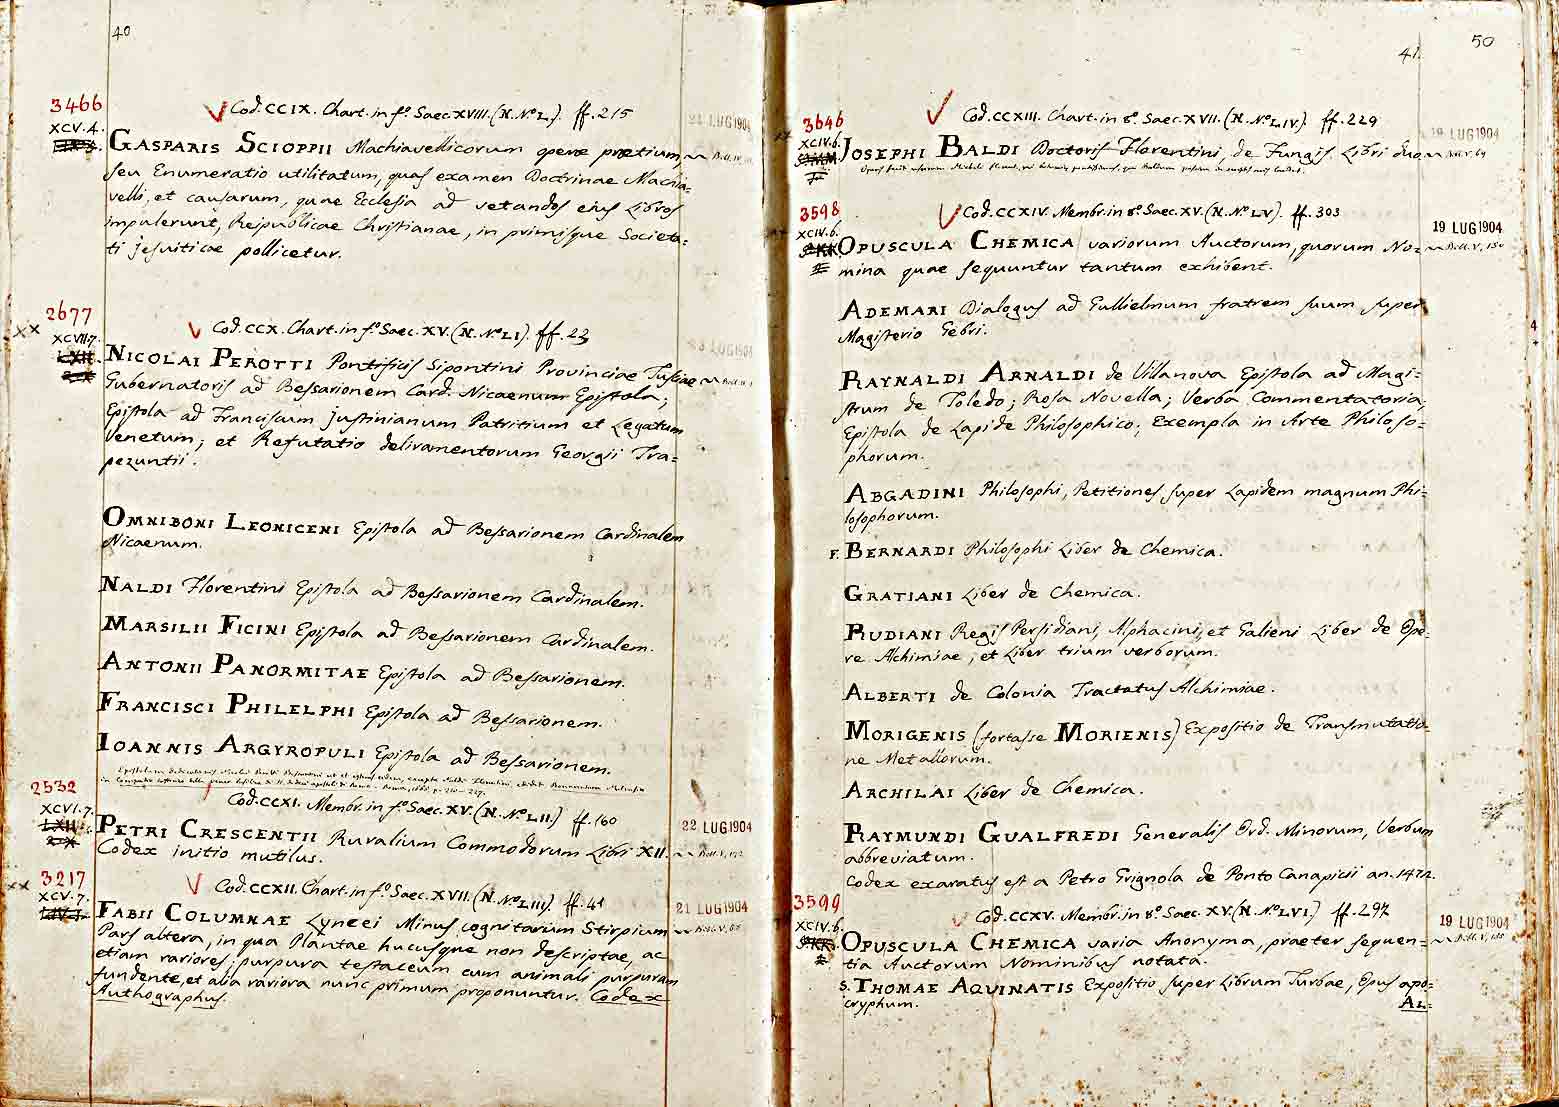 40
3466
XCV.4.
Cod. CCIX. Chart. in fo. Saec. XVIII. (N. No. L). ff. 215
21 LUG 1904
GASPARIS SCIOPPII Machiavellicorum operae pretium,
seu Enumeratio utilitatum, quas examen Doctrinae Machia=
velli, et causarum, quae Ecclesia ad vetandos ejus Libros
impulerunt, Reipublicae Christianae, in primisque Societa=
ti jesuiticae pollicetur.
2677
XX
XCVII.7.
Cod. CCX. Chart. in fo. Saec. XV. (N. No. LI). ff. 23
LUG 1904
NICOLAI PEROTTI Pontificis Sipontini Provinciae Tusciae
Gubernatoris ad Bessarionem Card. Nicaenum Epistola;
Epistola ad Franciscum justinianum Patritium et Legatum
Venetum; et Refutatio deliramentorum Georgii Tra=
pezuntii.
OMNIBONI LEONICENI Epistola ad Bessarionem Cardinalem
Nicaenum.
NALDI Florentini Epistola ad Bessarionem Cardinalem.
MARSILII FICINI Epistola ad Bessarionem Cardinalem.
ANTONII PANORMITAE Epistola ad Bessarionem.
FRANCISCI PHILELPHI Epistola ad Bessarionem.
IOANNIS ARGYROPULI Epistola ad Bessarionem.
2532
XCVI.7.
Cod. CCXI. Membr. in fo. Saec. XV. (N. No. LII) ff. 160
22 LUG 1904
PETRI CRESCENTII Ruralium Commodorum Libri XII.
Codex initio mutilus.
3217
XX
XCV.7.
Cod. CCXII. Chart. in fo. Saec. XVII. (N. No. LIII). ff. 41
21 LUG 1904
FABII COLUMNAE Lyncei Minus cognitarum Stirpium
Pars altera, in qua Plantae hucusque non descriptae, ac
etiam rariores; purpura testaceum cum animali purpuram
fundente, et alia rariora nunc primum proponuntur. Codex
Authographus.
50
41.
3646
XCIV.6.
Cod. CCXIII. Chart. in 8o. Saec. XVII. (N. No. LIV). ff. 229
19 LUG 1904
JOSEPHI BALDI Doctoris Florentini, de Fungis Libri duo.
3598
XCIV.6.
Cod. CCXIV. Membr. in 8o. Saec. XV. (N. No. LV). ff. 303
19 LUG 1904
OPUSCULA CHEMICA variorum Auctorum, quorum No=
Bdll. V, 150
mina quae sequuntur tantum exhibent.
ADEMARI Dialogus ad Gullielmum fratrem suum, super
Magisterio Gebri.
RAYNALDI ARNALDI de Vilanova Epistola ad Magi=
strum de Toledo; Rosa Novella; Verba Commentatoria;
Epistola de Lapide Philosophico; Exempla in Arte Philoso=
phorum.
ABGADINI Philosophi, Petitiones super Lapidem magnum Phi=
losophorum.
F. BERNARDI Philosophi Liber de Chemica.
GRATIANI Liber de Chemica.
RUDIANI Regis Persidiani, Alphacini, et Galieni Liber de Ope=
re Alchimiae, et Liber trium verborum.
ALBERTI de Colonia Tractatus Alchimiae.
MORIGENIS (fortasse MORIENIS) Expositio de Transmutatio=
ne Metallorum.
ARCHILAI Liber de Chemica.
RAYMUNDI GUALFREDI Generalis Ord. Minorum, Verbum
abbreviatum.
Codex exaratus est a Petro Grignola de Ponto Canapicii an. 1472.
3599
XCIV.6.
Cod. CCXV. Membr. in 8o. Saec. XV. (N. No. LVI.) ff. 297
19 LUG 1904
OPUSCULA CHEMICA varia Anonyma, praeter sequen=
tia Auctorum Nominibus notata.
S. THOMAE AQUINATIS Expositio super Librum Turbae, Opus apo=
cryphum.
AL=